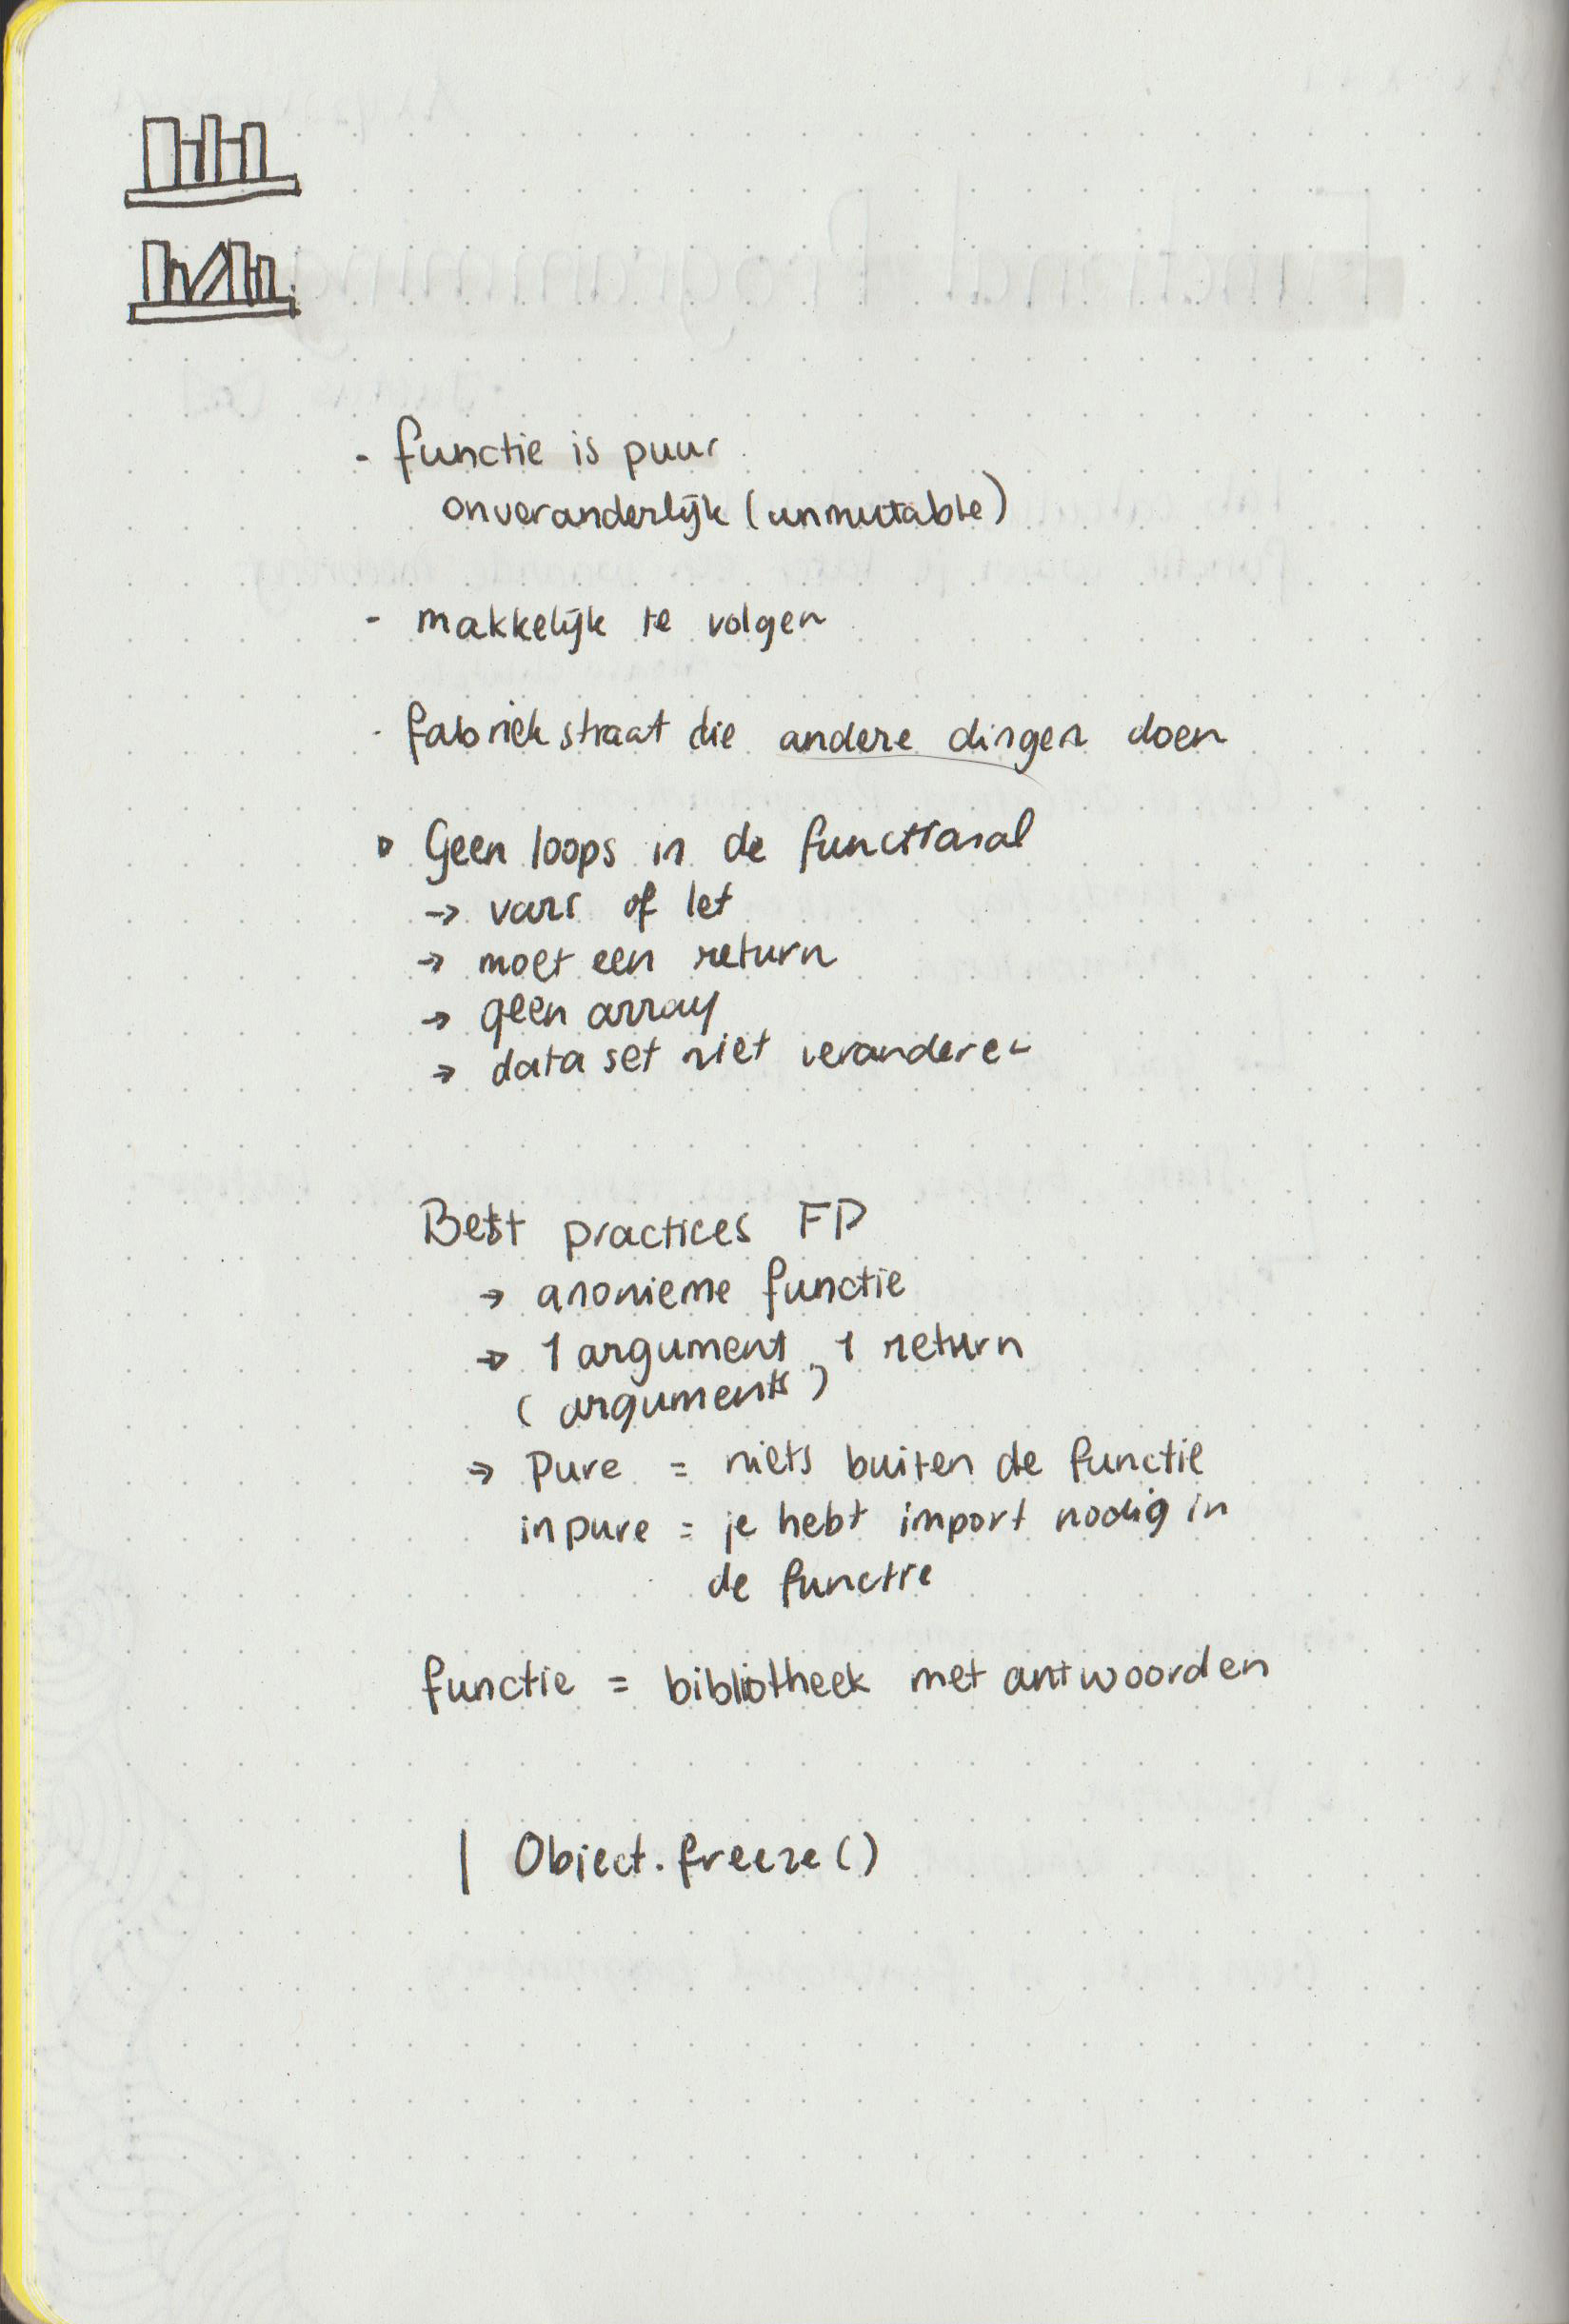 - functie is puur
onveranderlijk (unmutable)
- makkelijk te volgen
- fabriek straat die andere dingen doen
Geen loops in de functional
→ vars of let
→ moet een return
→ geen array
→ data set niet veranderen
Best practices FP
→ anonieme functie
→ 1 argument, 1 return
(arguments)
→ Pure = niets buiten de functie
inpure = je hebt import nodig in
de functie
functie = bibliotheek met antwoorden
| Object.freeze()